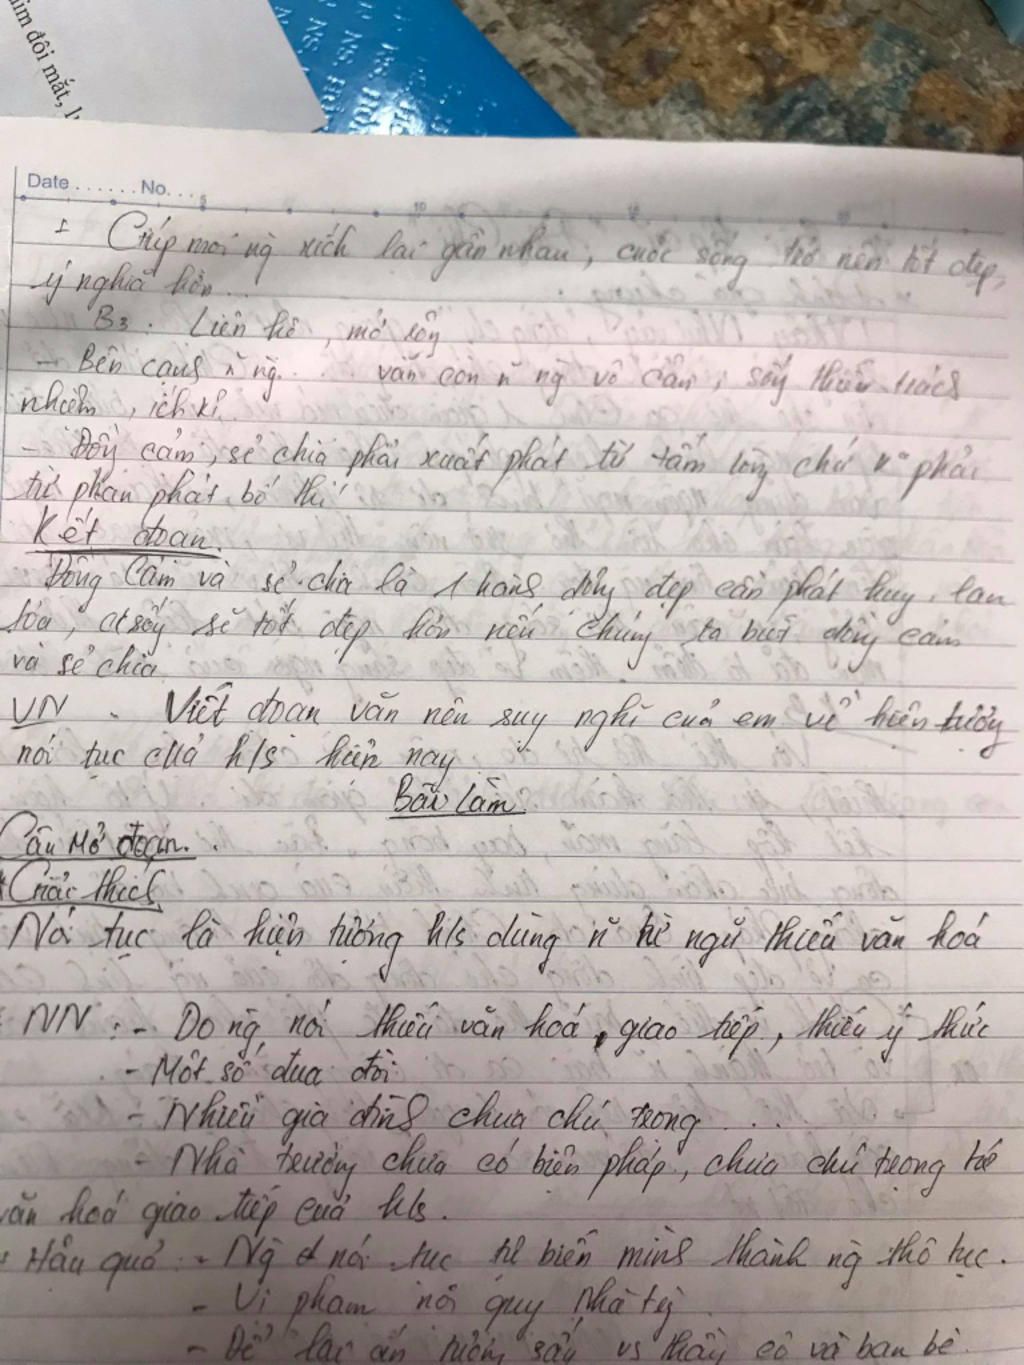 im đôi mắt, l
Date ...... No. ...
5 10 15
I Giúp mọi ng xích lại gần nhau, cuộc sống trở nên tốt đẹp,
ý nghĩa hơn...
B3. Liên hệ, mở rộng
- Bên cạnh ~ ng... vẫn còn ~ ng vô cảm, sống thiếu trách
nhiệm, ích kỉ
- Đồng cảm, sẻ chia phải xuất phát từ tấm lòng chứ k phải
từ phân phát, bố thí
Kết đoạn.
Đồng Cảm và sẻ chia là 1 hành động đẹp cần phát huy, lan
tỏa, sống sẽ tốt đẹp hơn nếu chúng ta biết đồng cảm
và sẻ chia
VN. Viết đoạn văn nên suy nghĩ của em về hiện tượng
nói tục của h/s hiện nay
Bài làm.
Câu Mở đoạn.
* Giải thích
Nói tục là hiện tượng h/s dùng ~ từ ngữ thiếu văn hoá
NN: - Do ng nói thiếu văn hoá, giao tiếp, thiếu ý thức
- Một số đua đòi
- Nhiều gia đình chưa chú trọng ...
- Nhà trường chưa có biện pháp, chưa chú trọng
văn hoá giao tiếp của h/s.
Hậu quả: - Ng nói tục tự biến mình thành ng thô tục.
- Vi phạm nội quy nhà
- Để lại ấn tượng xấu vs thầy cô và bạn bè